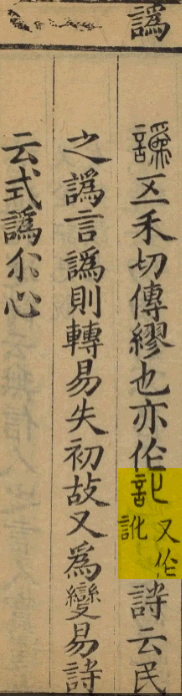 譌
五禾切傳繆也亦作又作訛詩云民
之譌言譌則轉易失初故又為變易詩
云式譌尔心